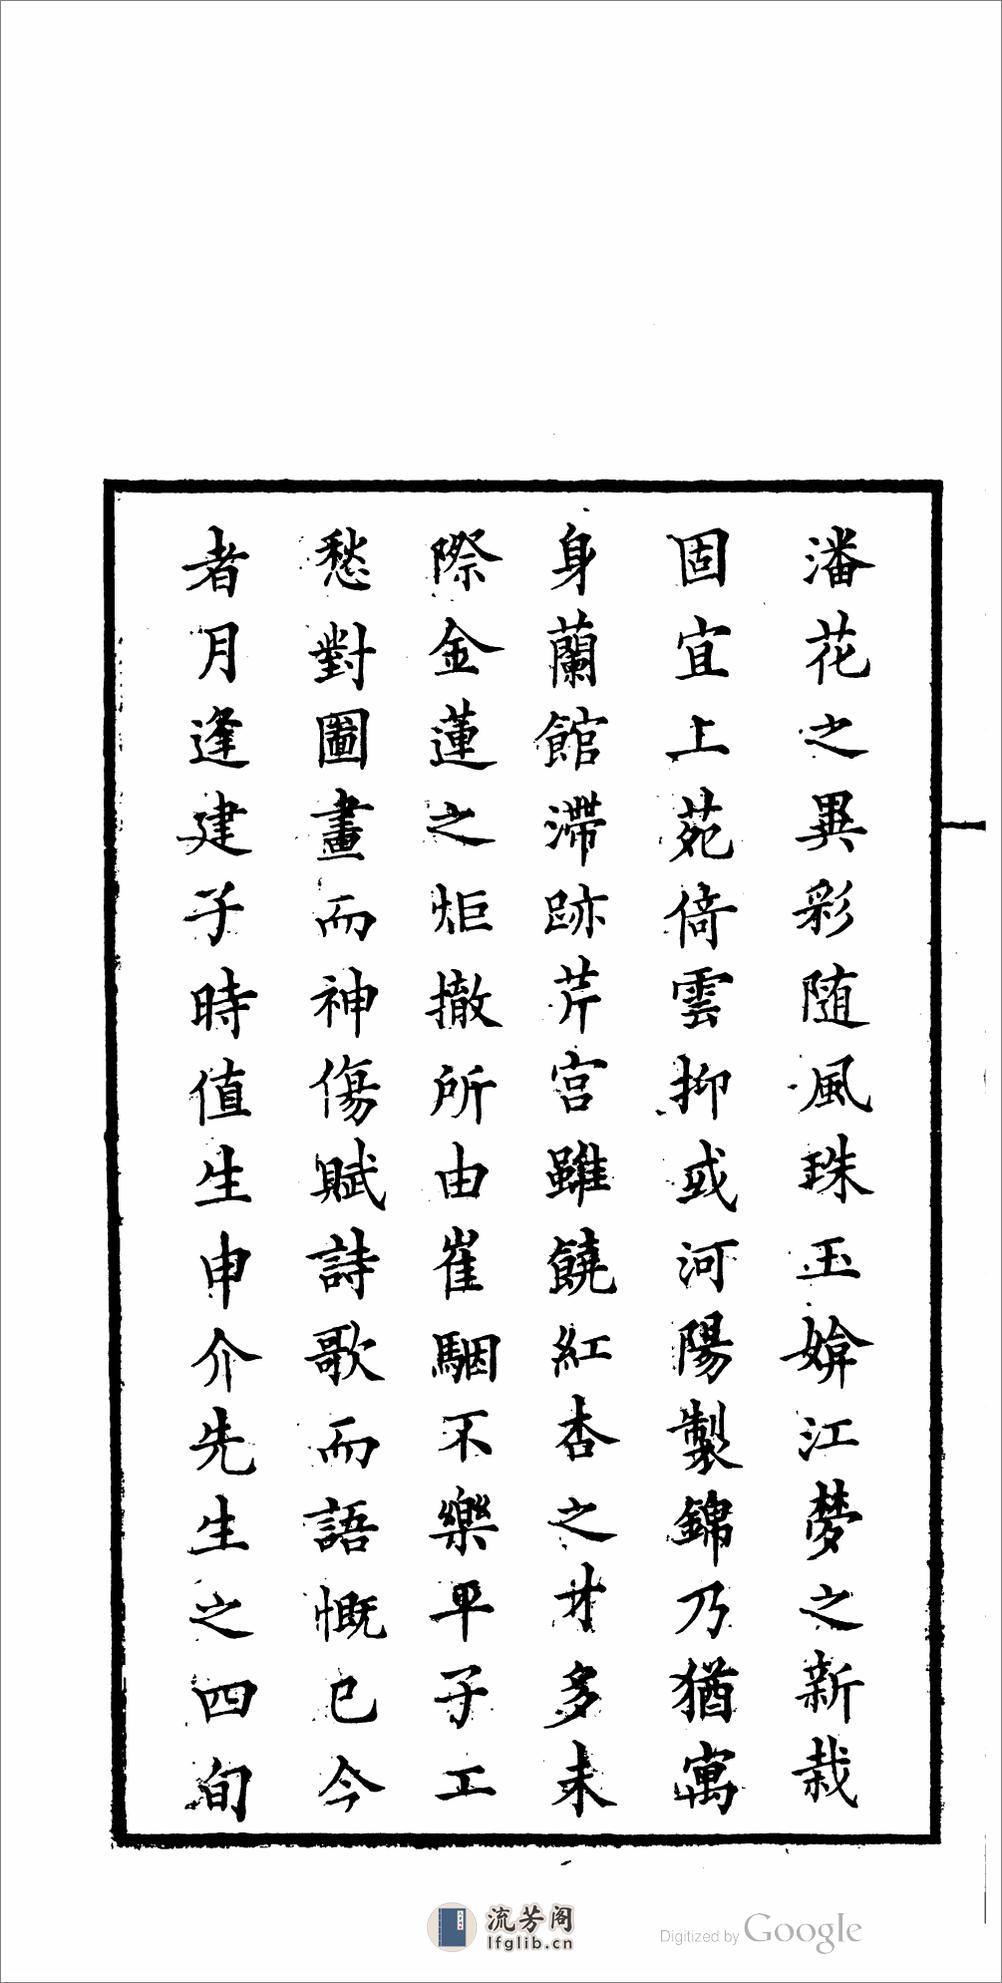 潘花之異彩随風珠玉媕江夢之新栽
固宜上苑倚雲抑或河陽製錦乃猶寓
身蘭館滯跡芹宮雖饒紅杏之才多未
際金蓮之炬撤所由崔駰不樂平子工
愁對圖畫而神傷賦詩歌而語慨已今
者月逢建子時值生申介先生之四旬
流芳阁
lfglib.cn
Digitized by Google